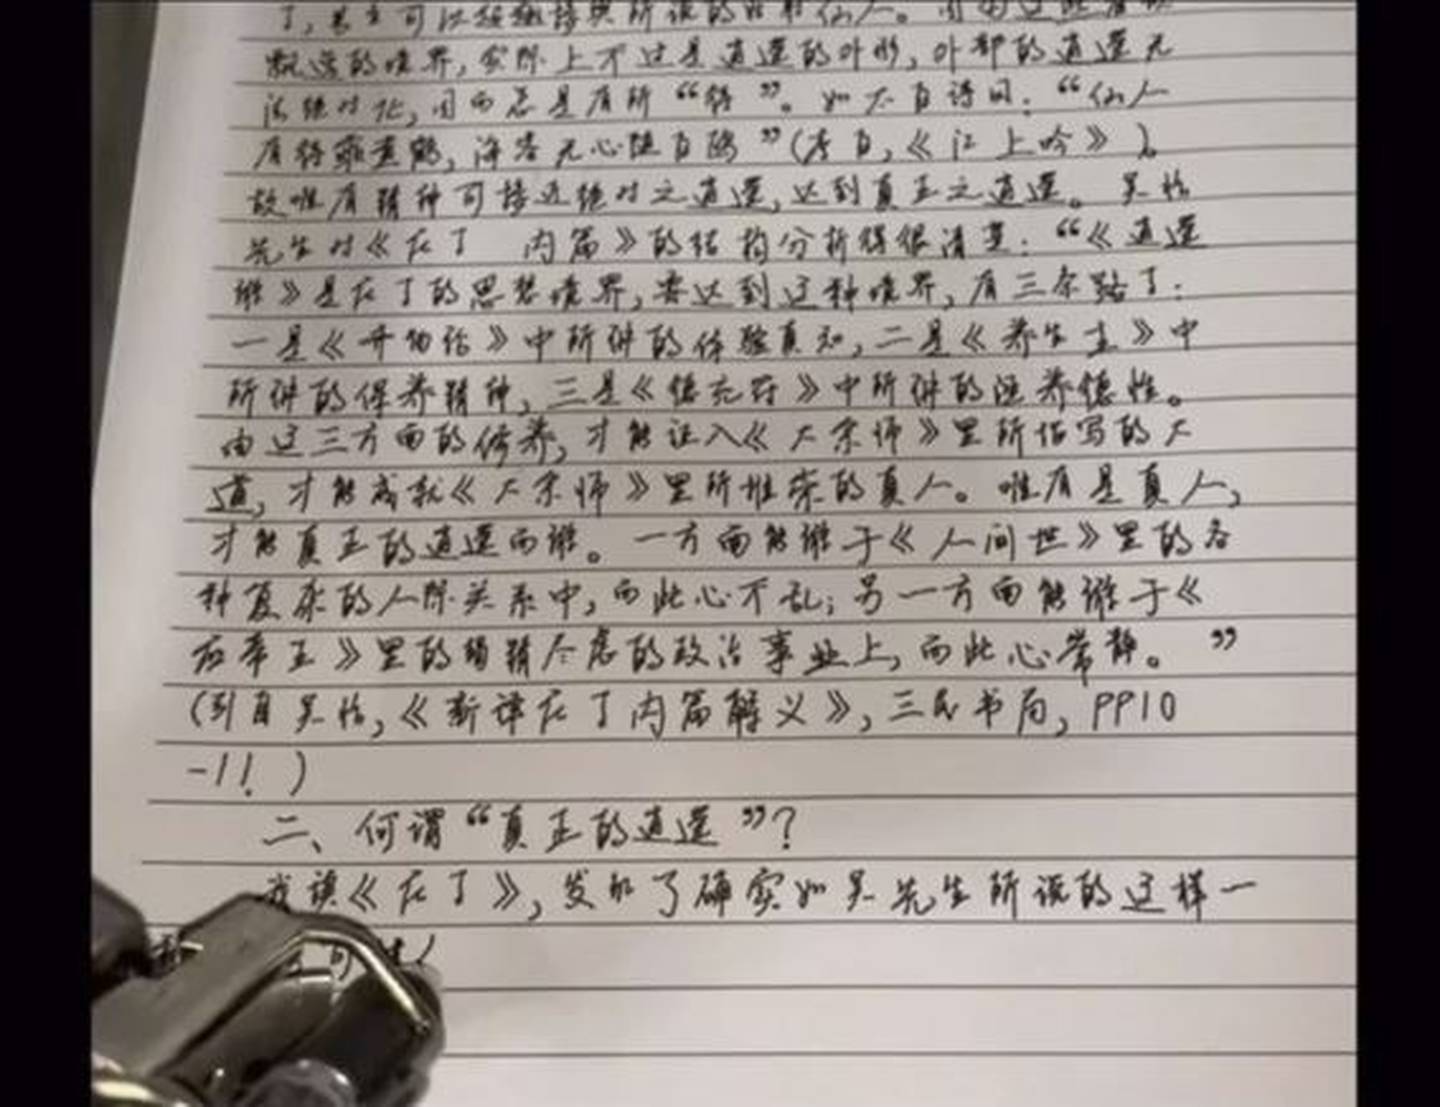 了，甚至可以超越接舆所说的姑射仙人。因为这些看似
飘逸的境界，实际上不过是逍遥的外形，外部的逍遥无
法绝对化，因而总是有所“待”。如太白诗曰：“仙人
有待乘黄鹤，海客无心随白鸥”（李白，《江上吟》）。
故唯有精神可接近绝对之逍遥，达到真正之逍遥。吴怡
先生对《庄子 内篇》的结构分析得很清楚：“《逍遥
游》是庄子的思想境界，要达到这种境界，有三条路子：
一是《齐物论》中所讲的体验真知，二是《养生主》中
所讲的保养精神，三是《德充符》中所讲的涵养德性。
由这三方面的修养，才能证入《大宗师》里所描写的大
道，才能成就《大宗师》里所推崇的真人。唯有是真人，
才能真正的逍遥而游。一方面能游于《人间世》里的各
种复杂的人际关系中，而此心不乱；另一方面能游于《
应帝王》里的竭精尽虑的政治事业上，而此心常静。”
（引自吴怡，《新译庄子内篇解义》，三民书局，PP10
-11）
二、何谓“真正的逍遥”？
我读《庄子》，发现了确实如吴先生所说的这样一